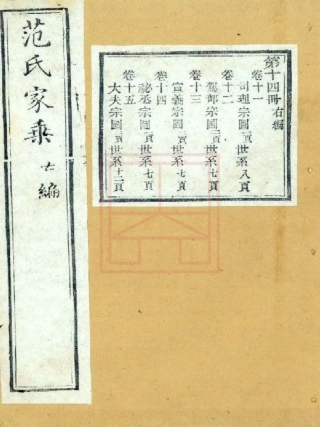 范氏家乘 右編
第十四冊右編
卷十一
司理宗圖一頁世系八頁
卷十二
駕部宗圖二頁世系七頁
卷十三
宣義宗圖一頁世系七頁
卷十四
祕丞宗圖一頁世系七頁
卷十五
大夫宗圖一頁世系十二頁